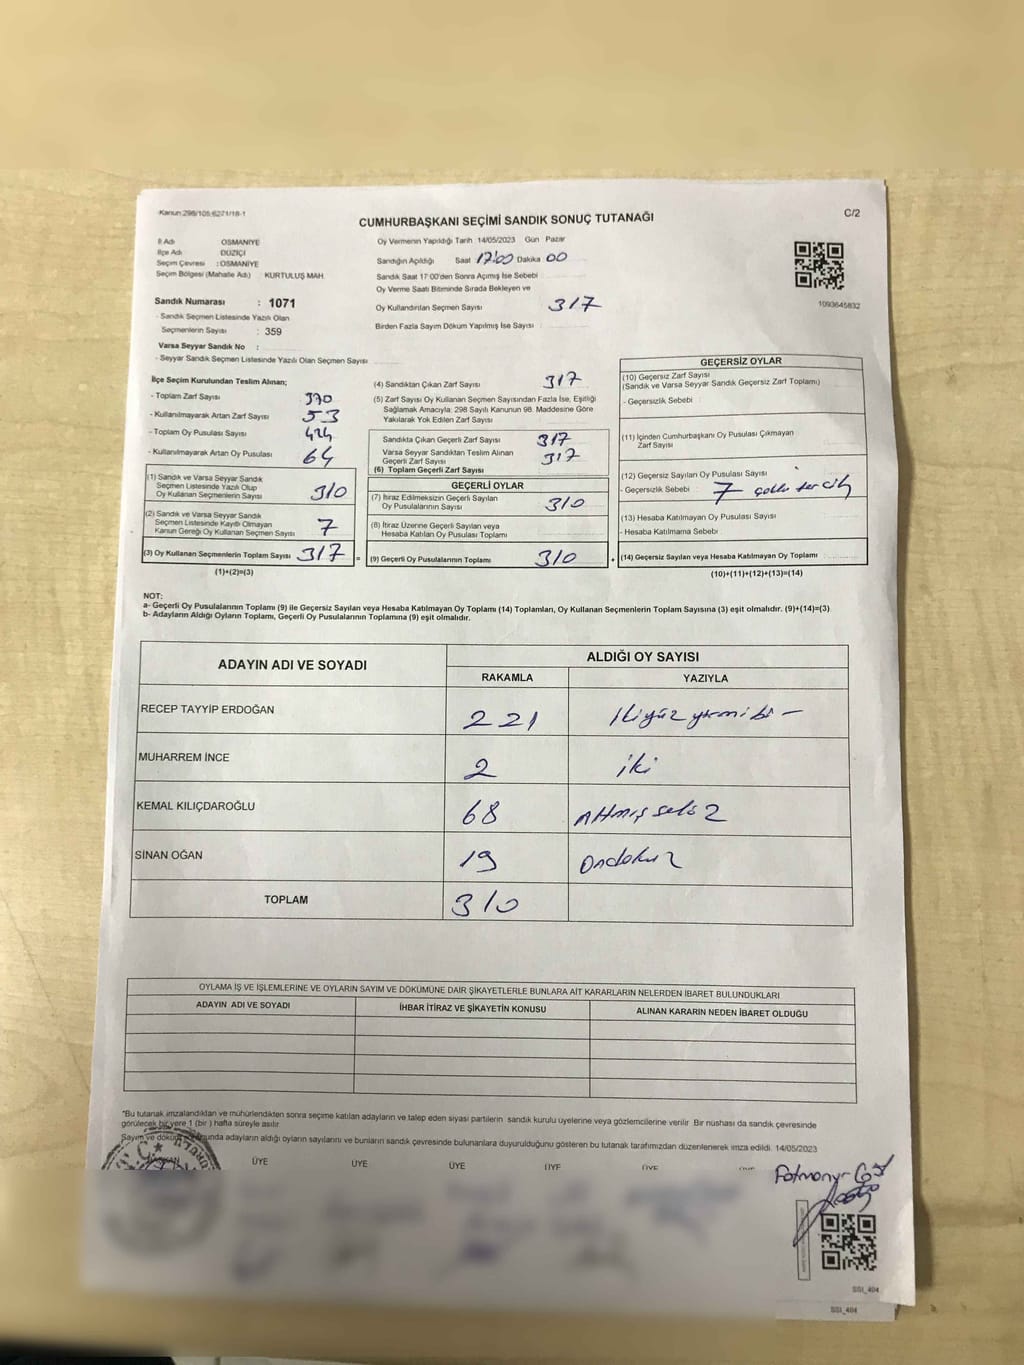 Kanun:298/105;6271/18-1
CUMHURBAŞKANI SEÇİMİ SANDIK SONUÇ TUTANAĞI
C/2
İl Adı OSMANİYE
İlçe Adı DÜZİÇİ
Seçim Çevresi : OSMANİYE
Seçim Bölgesi (Mahalle Adı) KURTULUŞ MAH.
Oy Vermenin Yapıldığı Tarih 14/05/2023 Gün Pazar
Sandığın Açıldığı Saat 17:00 Dakika 00
Sandık Saat 17:00'den Sonra Açılmış İse Sebebi
Oy Verme Saati Bitiminde Sırada Bekleyen ve
Oy Kullandırılan Seçmen Sayısı 317
Birden Fazla Sayım Döküm Yapılmış İse Sayısı
1093645832
Sandık Numarası : 1071
- Sandık Seçmen Listesinde Yazılı Olan
Seçmenlerin Sayısı : 359
Varsa Seyyar Sandık No :
- Seyyar Sandık Seçmen Listesinde Yazılı Olan Seçmen Sayısı
İlçe Seçim Kurulundan Teslim Alınan;
- Toplam Zarf Sayısı 370
- Kullanılmayarak Artan Zarf Sayısı 53
- Toplam Oy Pusulası Sayısı 424
- Kullanılmayarak Artan Oy Pusulası 64
(1) Sandık ve Varsa Seyyar Sandık
Seçmen Listesinde Yazılı Olup
Oy Kullanan Seçmenlerin Sayısı 310
(2) Sandık ve Varsa Seyyar Sandık
Seçmen Listesinde Kayıtlı Olmayan
Kanun Gereği Oy Kullanan Seçmen Sayısı 7
(3) Oy Kullanan Seçmenlerin Toplam Sayısı 317 =
(1)+(2)=(3)
(4) Sandıktan Çıkan Zarf Sayısı 317
(5) Zarf Sayısı Oy Kullanan Seçmen Sayısından Fazla İse, Eşitliği
Sağlamak Amacıyla; 298 Sayılı Kanunun 98. Maddesine Göre
Yakılarak Yok Edilen Zarf Sayısı
Sandıkta Çıkan Geçerli Zarf Sayısı 317
Varsa Seyyar Sandıktan Teslim Alınan
Geçerli Zarf Sayısı 317
(6) Toplam Geçerli Zarf Sayısı
GEÇERLİ OYLAR
(7) İtiraz Edilmeksizin Geçerli Sayılan
Oy Pusulalarının Sayısı 310
(8) İtiraz Üzerine Geçerli Sayılan veya
Hesaba Katılan Oy Pusulası Toplamı
(9) Geçerli Oy Pusulalarının Toplamı 310 +
GEÇERSİZ OYLAR
(10) Geçersiz Zarf Sayısı
(Sandık ve Varsa Seyyar Sandık Geçersiz Zarf Toplamı)
- Geçersizlik Sebebi
(11) İçinden Cumhurbaşkanı Oy Pusulası Çıkmayan
Zarf Sayısı
(12) Geçersiz Sayılan Oy Pusulası Sayısı
- Geçersizlik Sebebi 7 çoklu tercih
(13) Hesaba Katılmayan Oy Pusulası Sayısı
- Hesaba Katılmama Sebebi
(14) Geçersiz Sayılan veya Hesaba Katılmayan Oy Toplamı
(10)+(11)+(12)+(13)=(14)
NOT:
a- Geçerli Oy Pusulalarının Toplamı (9) ile Geçersiz Sayılan veya Hesaba Katılmayan Oy Toplamı (14) Toplamları, Oy Kullanan Seçmenlerin Toplam Sayısına (3) eşit olmalıdır. (9)+(14)=(3)
b- Adayların Aldığı Oyların Toplamı, Geçerli Oy Pusulalarının Toplamına (9) eşit olmalıdır.
ADAYIN ADI VE SOYADI
ALDIĞI OY SAYISI
RAKAMLA YAZIYLA
RECEP TAYYİP ERDOĞAN 221 ikiyüz yirmi bir
MUHARREM İNCE 2 iki
KEMAL KILIÇDAROĞLU 68 Altmış sekiz
SİNAN OĞAN 19 Ondokuz
TOPLAM 310
OYLAMA İŞ VE İŞLEMLERİNE VE OYLARIN SAYIM VE DÖKÜMÜNE DAİR ŞİKAYETLERLE BUNLARA AİT KARARLARIN NELERDEN İBARET BULUNDUKLARI
ADAYIN ADI VE SOYADI İHBAR İTİRAZ VE ŞİKAYETİN KONUSU ALINAN KARARIN NEDEN İBARET OLDUĞU
*Bu tutanak imzalandıktan ve mühürlendikten sonra seçime katılan adayların ve talep eden siyasi partilerin sandık kurulu üyelerine veya gözlemcilerine verilir. Bir nüshası da sandık çevresinde
görülecek bir yere 1 (bir) hafta süreyle asılır.
Sayım ve döküm sonunda adayların aldığı oyların sayılarını ve bunların sandık çevresinde bulunanlara duyurulduğunu gösteren bu tutanak tarafımızdan düzenlenerek imza edildi. 14/05/2023
BAŞKAN ÜYE ÜYE ÜYE ÜYE ÜYE
SSI_404
SSI_404